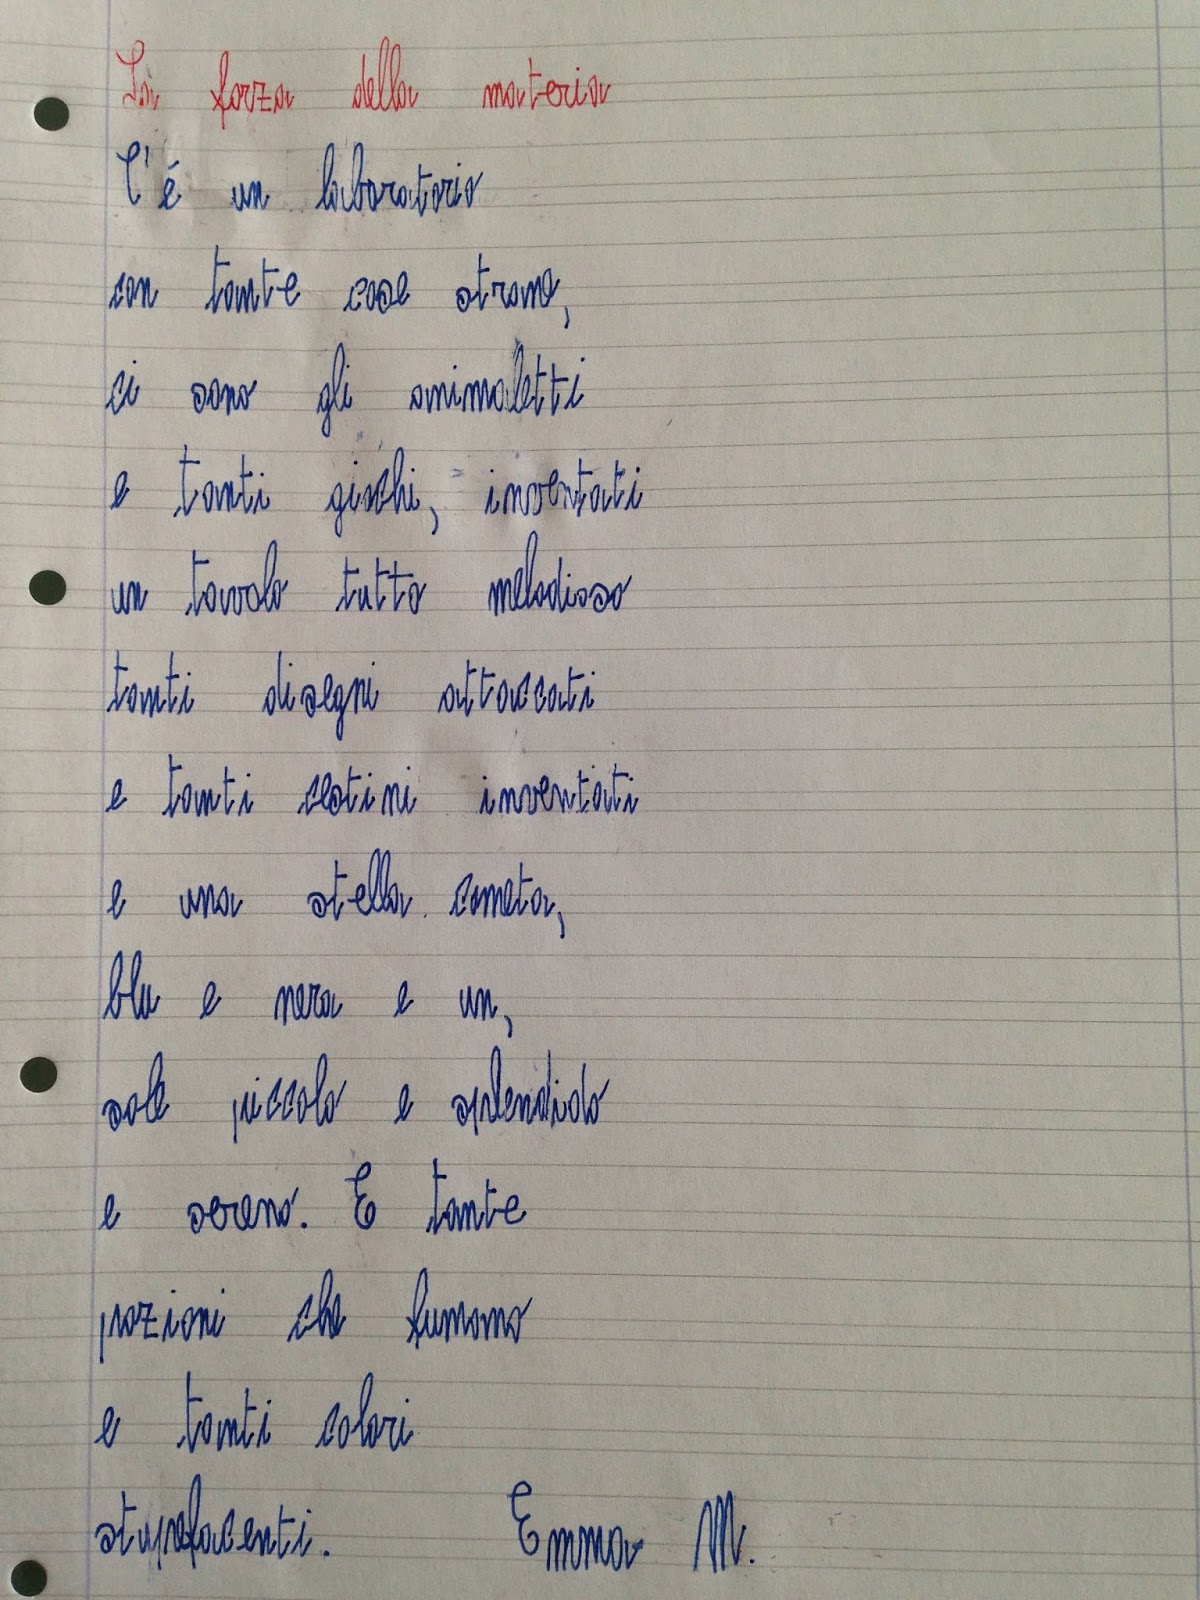 La forza della materia
C'é un laboratorio
con tante cose strane,
ci sono gli animaletti
e tanti giochi, inventati
un tavolo tutto melodioso
tanti disegni attaccati
e tanti cestini inventati
e una stella cometa,
blu e nera e un,
sole piccolo e splendido
e sereno. E tante
pozioni che fumano
e tanti colori
stupefacenti. Emma M.